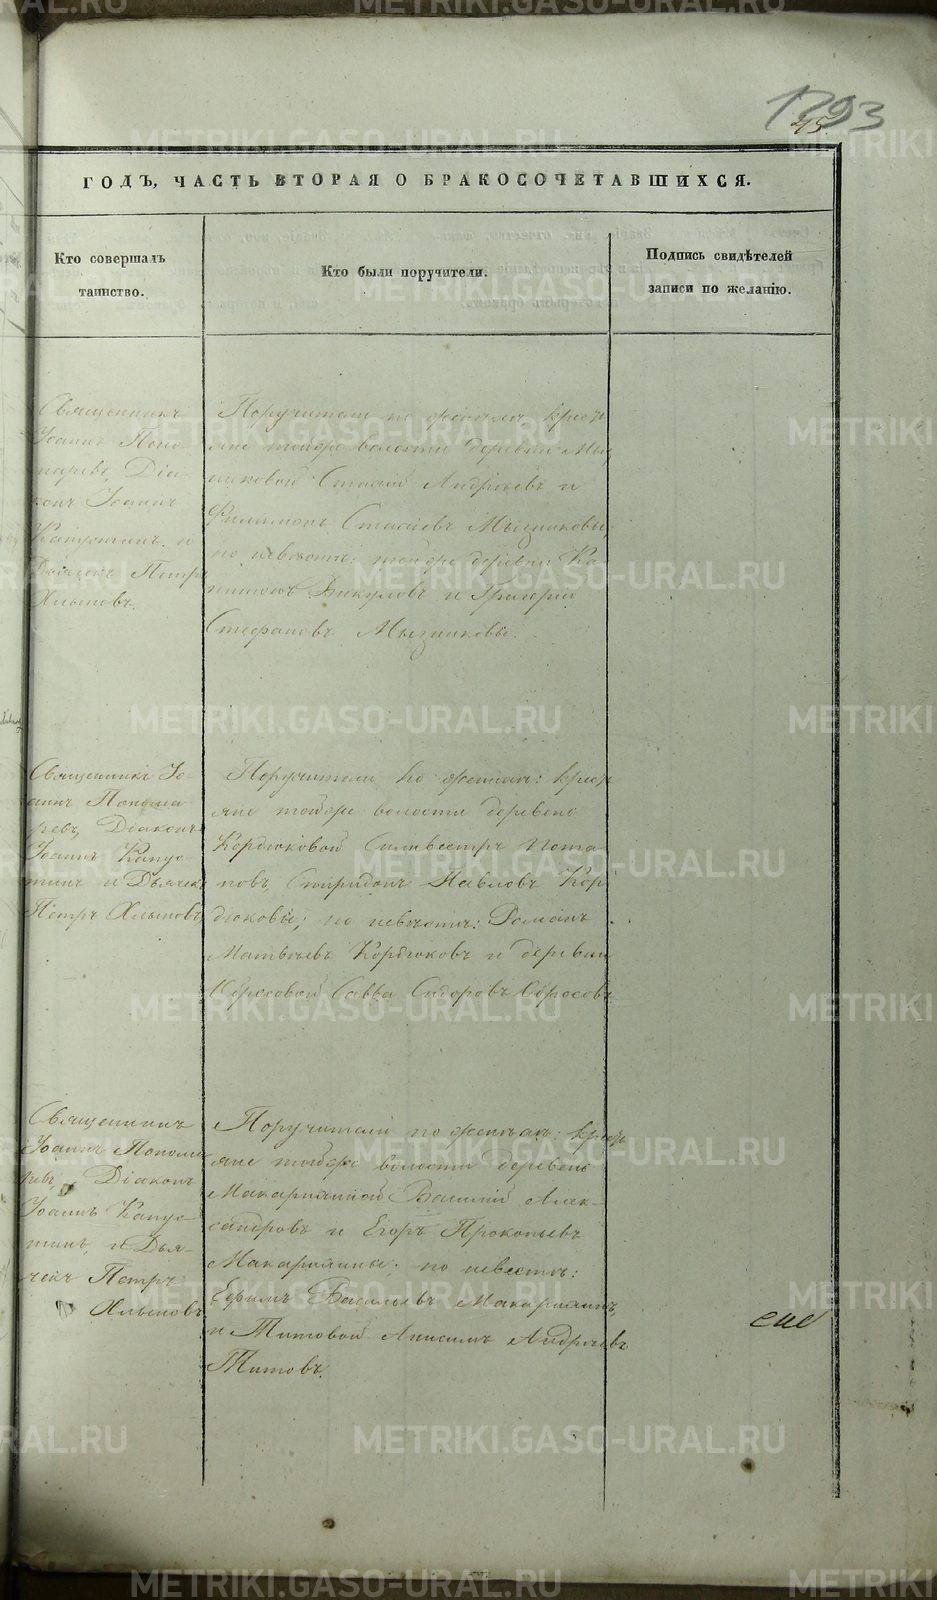 1793
45
ГОДЪ, ЧАСТЬ ВТОРАЯ О БРАКОСОЧЕТАВШИХСЯ.
Кто совершалъ
таинство.
Кто были поручители.
Подпись свидѣтелей
записи по желанію.
Священникъ
Іоаннъ Поно-
маревъ, Діа-
конъ Іоаннъ
Капустинъ и
Дьячекъ Петръ
Хлыновъ.
Поручители по женихѣ: кресть
яне тойже волости деревни Мы
никовой Андрѣевъ и
Филимонъ Мызниковы,
по невѣстѣ: тойже деревни Ка
питонъ Викуловъ и Григорій
Стефановъ Мызниковы.
Священникъ Іо-
аннъ Понома-
ревъ, Діаконъ
Іоаннъ Капус-
тинъ и Дьячекъ
Петръ Хлыновъ,
Поручители по женихѣ: крест
яне тойже волости деревень
Кордюковой Сильвестръ Пота
повъ, Спиридонъ Павловъ Кор
дюковы; по невѣстѣ: Романъ
Матвѣевъ Кордюковъ и деревни
Савва Сидоровъ
Священникъ
Іоаннъ Понома
ревъ, Діаконъ
Іоаннъ Капус-
тинъ, и Дья-
чекъ Петръ
Хлыновъ,
Поручители по женихѣ: крест
яне тойже волости деревень
Василій Алек-
сандровъ и Егоръ Прокопьевъ
по невѣстѣ:
Ефимъ Васильевъ
и Титовой Анисимъ Андрѣевъ
Титовъ.
METRIKI.GASO-URAL.RU